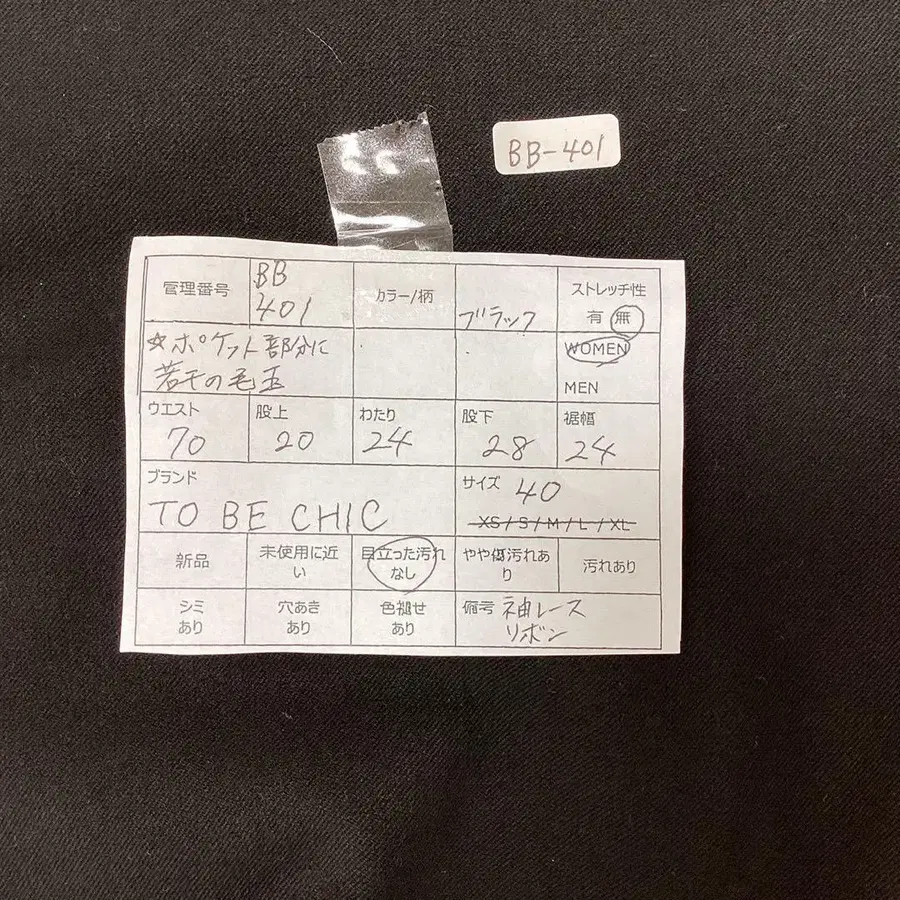 BB-401
管理番号
BB
401
カラー/柄
ブラック
ストレッチ性
有 無
☆ポケット部分に
若干の毛玉
WOMEN
MEN
ウエスト
70
股上
20
わたり
24
股下
28
裾幅
24
ブランド
TO BE CHIC
サイズ 40
XS/S/M/L/XL
新品
未使用に近
い
目立った汚れ
なし
やや傷汚れあ
り
汚れあり
シミ
あり
穴あき
あり
色褪せ
あり
備考 袖レース
リボン